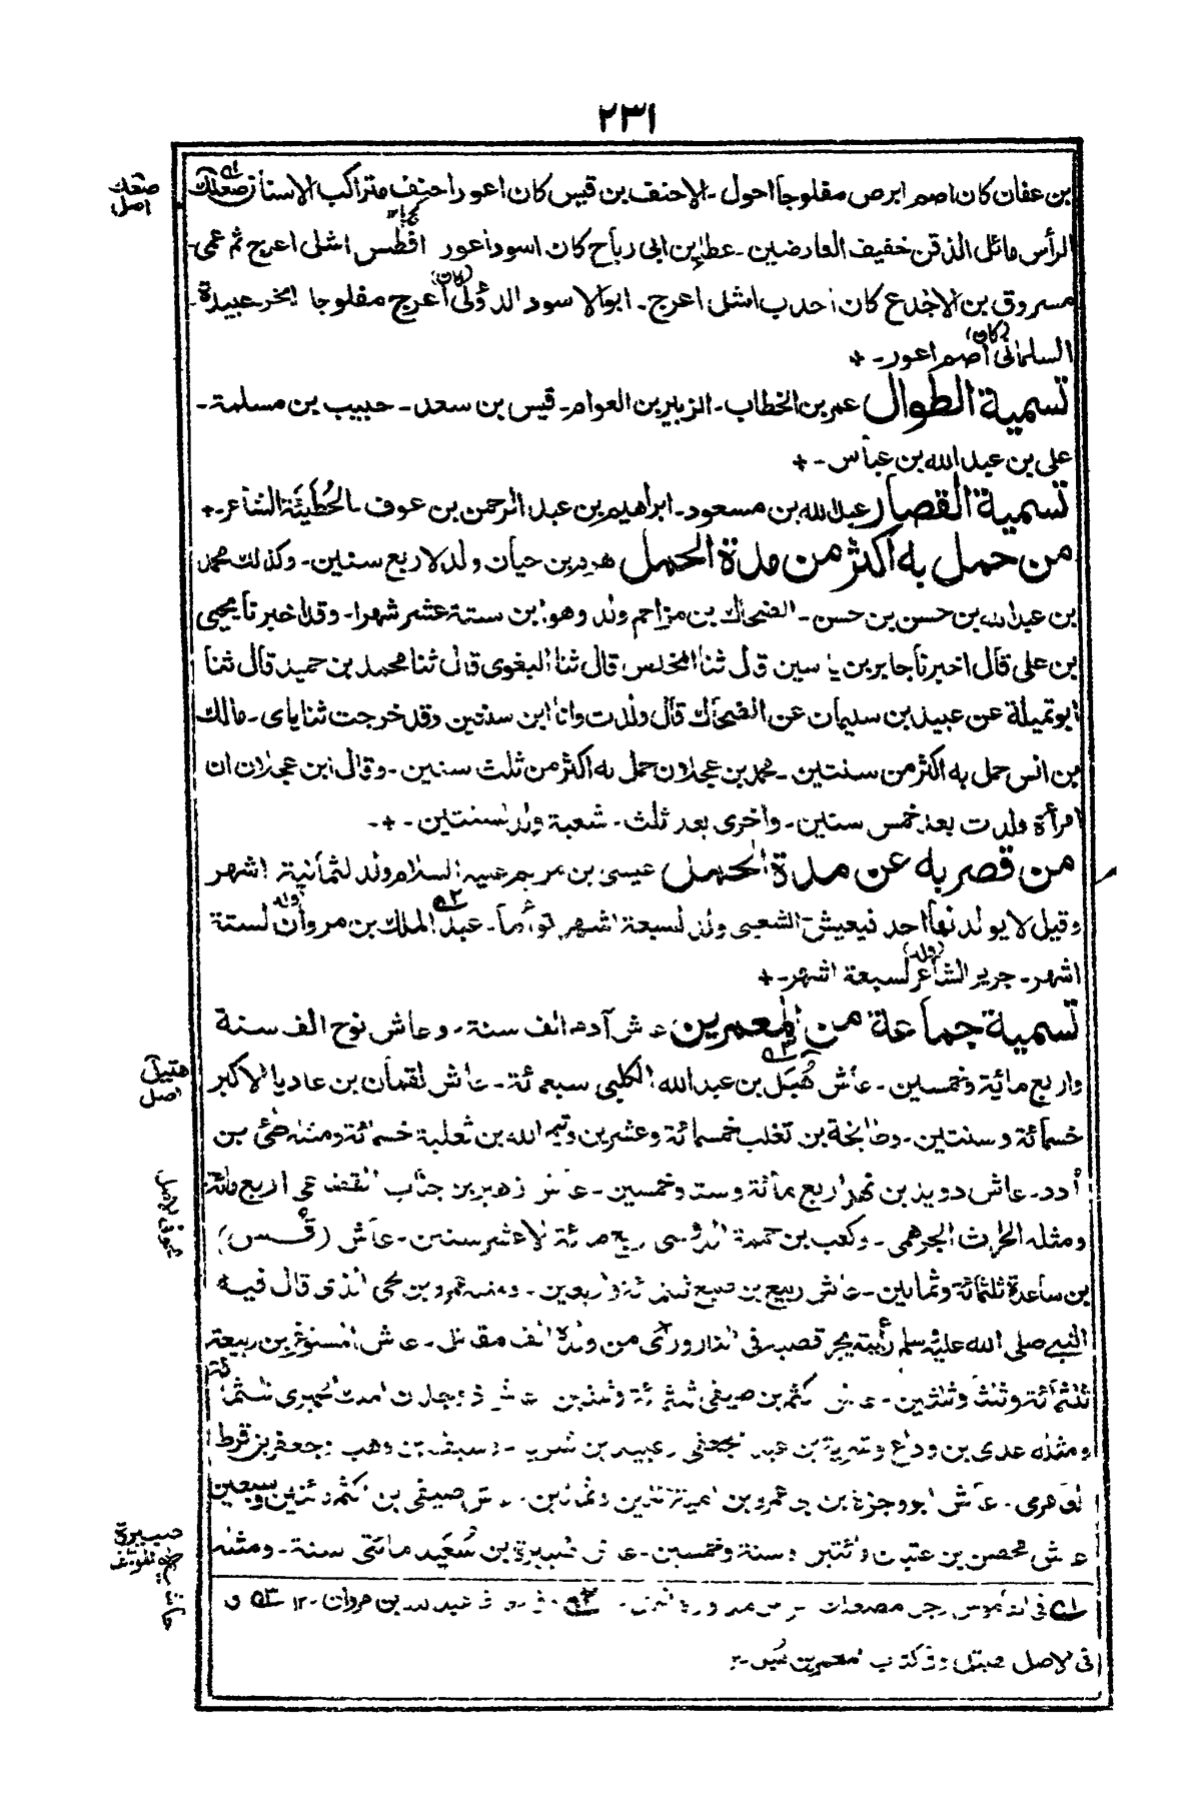 ٢٣١
بن عفان كان اصم ابرص مفلوجا احول - الاحنف بن قيس كان اعور احنف متراكب الاسنان صعلك
صتعك
اصل
الرأس مائل الذقن خفيف العارضين - عطاء بن ابى رباح كان اسود اعور افطس اشل اعرج ثم عمى -
مسروق بن الاجدع كان احدب اشل اعرج - ابو الاسود الدؤلى (كان) اعرج مفلوجا ابخر عبيدة
السلمانى (كان) اصم اعور - +
تسمية الطوال عمر بن الخطاب - الزبير بن العوام - قيس بن سعد - حبيب بن مسلمة -
على بن عبد الله بن عباس - +
تسمية القصار عبد الله بن مسعود - ابراهيم بن عبد الرحمن بن عوف - الحُطَيئَة الشاعر - +
من حمل به اكثر من مدة الحمل هرم بن حيان ولد لاربع سنين - وكذلك محمد
بن عبد الله بن حسن بن حسن - الضحاك بن مزاحم ولد وهو ابن ستة عشر شهرا - وقد اخبرنا يحيى
بن على قال اخبرنا جابر بن ياسين قال ثنا المخلص قال ثنا البغوى قال ثنا محمد بن حميد قال ثنا
ابو تميلة عن عبيد بن سليمان عن الضحاك قال ولدت وانا ابن سنتين وقد خرجت ثناياى - مالك
بن انس حمل به اكثر من سنتين - محمد بن عجلان حمل به اكثر من ثلث سنين - وقال ابن عجلان ان
امرأة ولدت بعد خمس سنين - واخرى بعد ثلث - شعبة ولد لسنتين - + -
من قصر به عن مدة الحمل عيسى بن مريم عليه السلام ولد لثمانية اشهر
وقيل لا يولد لها احد فيعيش الشعبى ولد لسبعة اشهر توأما - عبد الملك بن مروان ولد لستة
اشهر - جرير الشاعر (ولد) لسبعة اشهر - +
تسمية جماعة من المعمرين عاش آدم الف سنة - وعاش نوح الف سنة
واربع مائة وخمسين - عاش هُبَل بن عبد الله الكلبى سبعمائة - عاش لقمان بن عاديا الاكبر
هتيل
اصل
خسمائة وستين - وطابخة بن تغلب خمسمائة وعشرين وتيم الله بن ثعلبة خسمائة ومثله طئ بن
أدد - عاش دويد بن نهد اربع مائة وست وخمسين - عاش زهير بن جناب القضاعى اربع مائة
ومثله الحارث الجرهمى - وكعب بن حممة الدوسى اربع مائة الا عشر سنين - عاش (قُس)
بن ساعدة ثلثمائة وثمانين - عاش ربيع بن ضبع ثلثمائة واربعين - ومثله عمرو بن لحى الذى قال فيه
النبى صلى الله عليه وسلم رأيته يجر قصبه فى النار ورأى من ولده الف مقاتل - عاش المستوغر بن ربيعة
ثلثمائة وثلث وثلثين - عاش اكثم بن صيفى ثلثمائة وثلثين
ومثله عدى بن وداع وشرية بن عبد الجعفى وعبيد بن شرية - وسيف بن وهب وجعفر بن قرط
عاش محصن بن عتبان مائتين وستة وخمسين - عاش ضبيرة بن سُعَيد مائتى سنة - ومثله
ضبيرة
ه١ فى القاموس رجل مصعلك الرأس مدورة ه٢ عبد الله بن مروان - ١٢ ه٣ و
فى الاصل هبتل وفى كتاب المعمرين هُبل - ١٢